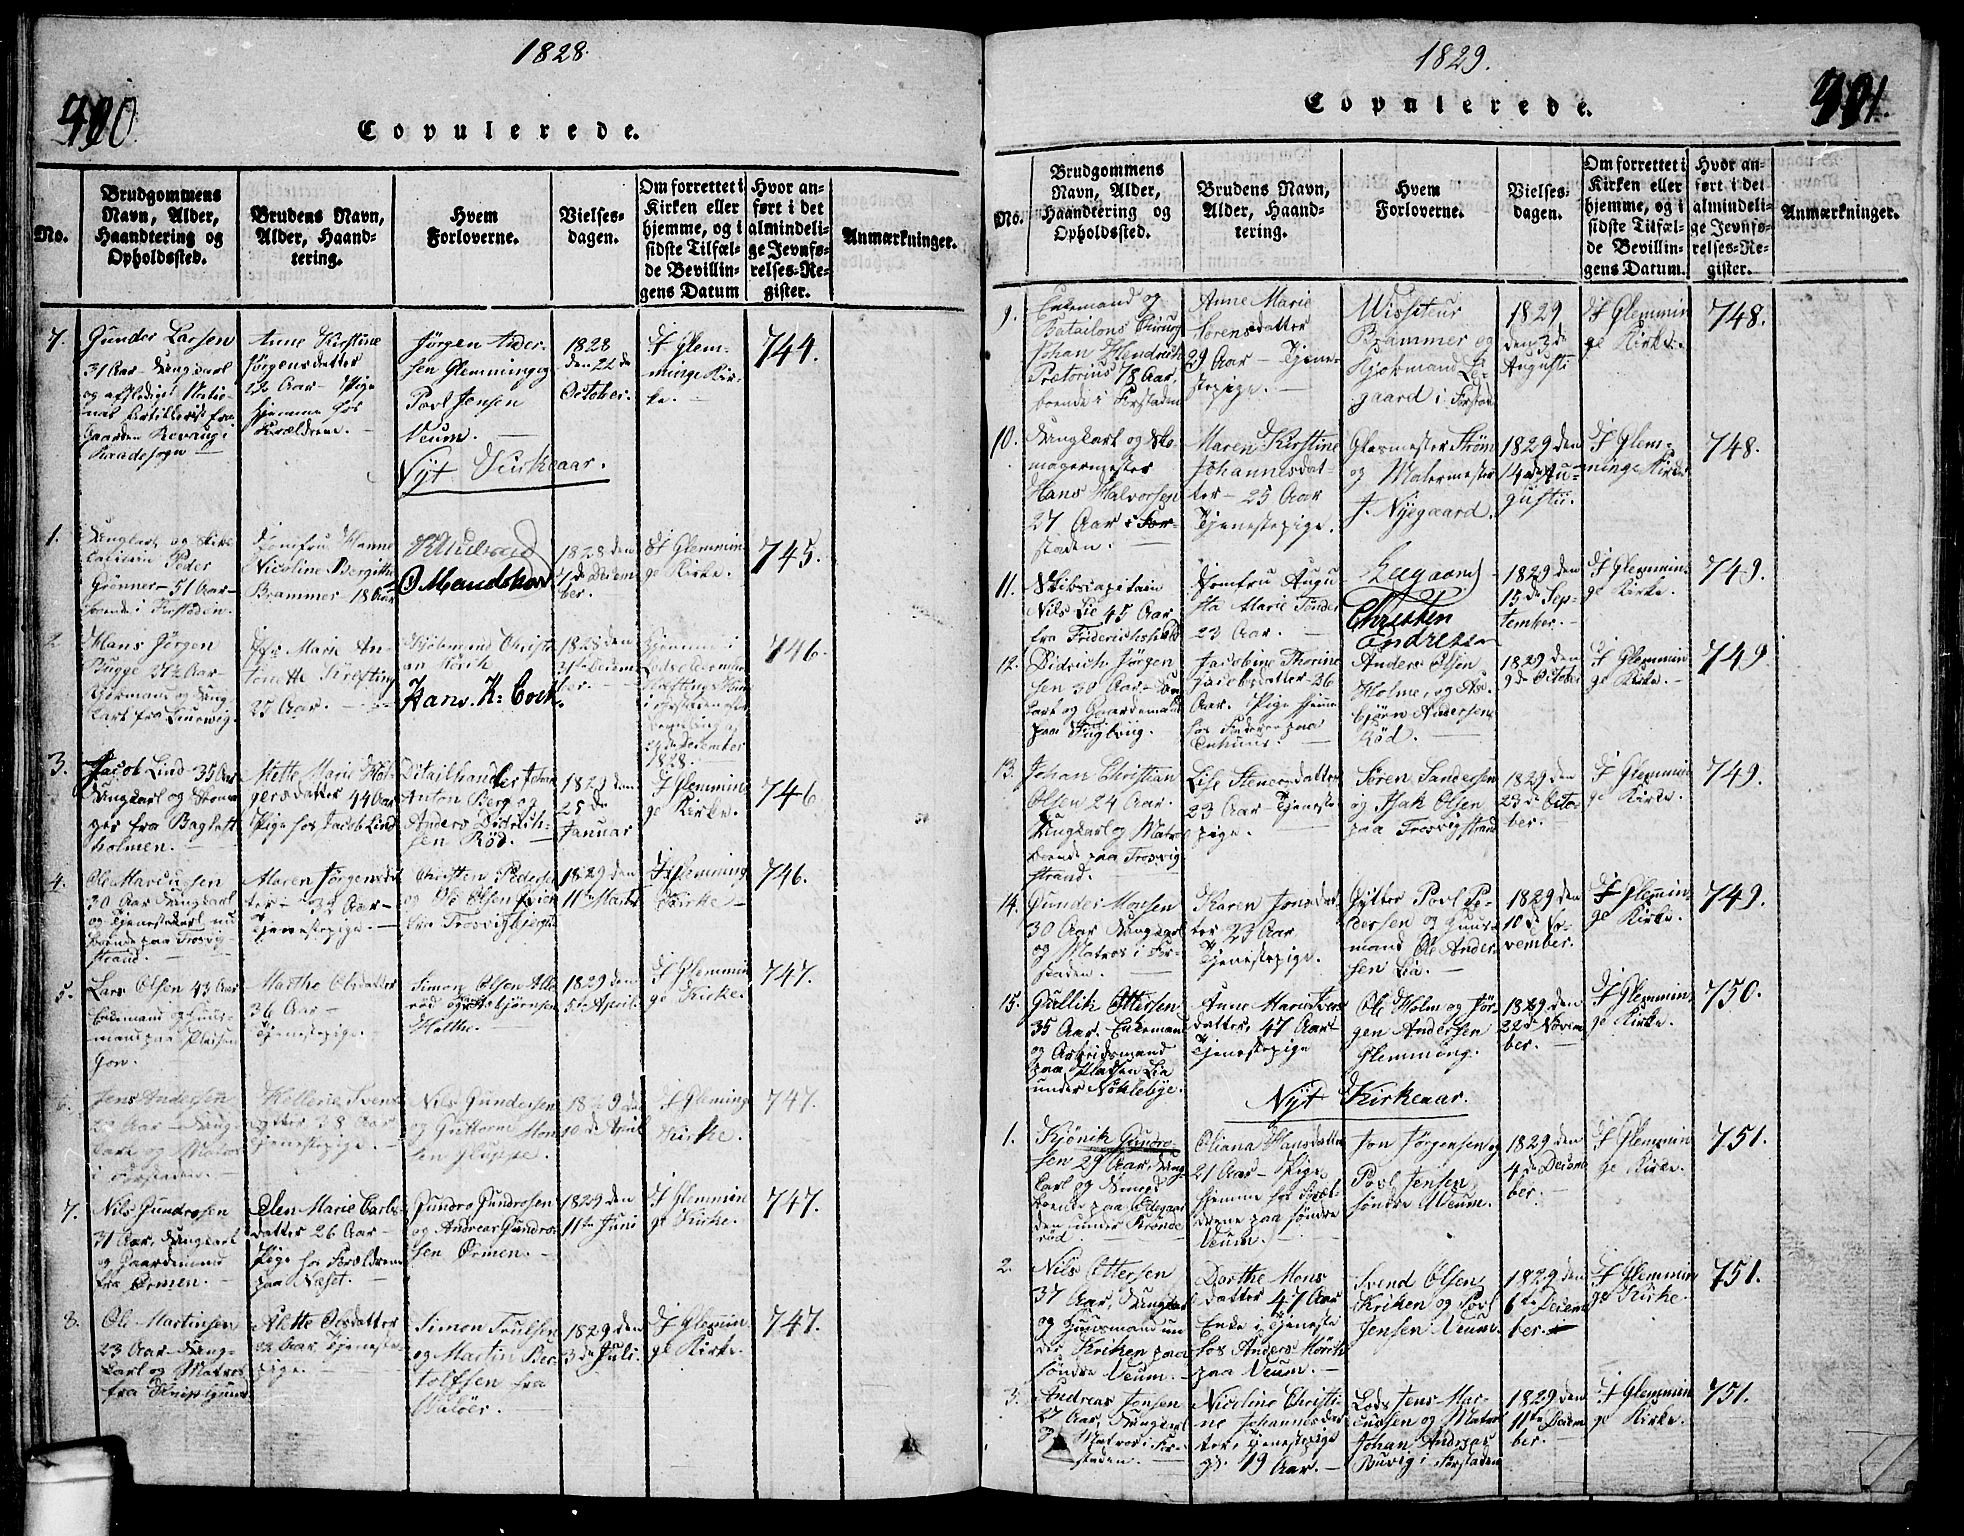 1828.
400
Copulerede.
No.
Brudgommens
Navn, Alder,
Haandtering og
Opholdssted.
Brudens Navn,
Alder, Haand-
tering.
Hvem
Forloverne.
Vielses-
dagen.
Om forrettet i
Kirken eller
hjemme, og i
sidste Tilfæl-
de Bevillin-
gens Datum
Hvor an-
ført i det
almindeli-
ge Jevnfø-
relses-Re-
gister.
Anmærkninger.
7.
Gunder Larsen
31 Aar
Gaarden
Raade Sogn
Anne Kirstine
Jørgensdatter
22 Aar - Pige
hjemme hos
Forældrene.
Jørgen Ander-
sen Glemming og
Povl Jensen
Veum.
1828
den 22de
October.
I Glem-
minge Kir-
ke.
744.
Nyt Kirkeaar.
1.
Ungkarl og
Peder
Grønner - 51 Aar
boende i Forstaden.
Jomfru Hanne
Nicoline Bergitthe
Brammer 18 Aar
O Mandskov
1828 den
7de Decem-
ber.
I Glemmin-
ge Kirke.
745.
2.
Hans Jørgen
Bugge 27½ Aar
Jfr. Marie An-
tonette
25 Aar.
Kjøbmand Christi-
an
Hans. K: Cock.
1828 den
Decem-
ber.
Hjemme i
December
1828.
746.
3.
Jacob Lind 35 Aar
Ungkarl og
fra
holmen.
Mette Marie Hol-
gersdatter 44 Aar
Pige hos Jacob Lind
Detailhandler Johan
Anton Berg og
Anders Didrich-
sen Röd.
1829 den
25 de
Januar
I Glemmin
ge Kirke.
746
4.
Ole Marcussen
30 Aar Ungkarl
og Tjenestekarl nu
boende paa Trosvig-
strand.
Maren Jørgensdat
ter - 32 Aar -
Tjenestepige.
Christen Peders
og Ole Olsen
fra
1829 den
11te Marts
I Glemming
Kirke
746.
5.
Lars Olsen 43 Aar
Enkemand og Huus-
mand paa
Marthe Olsdatter
36 Aar -
Tjenestepige.
Simon Olsen Alle-
röd og Asbjörnsen
Holthe.
1829 den
5te April.
I Glemmin
ge Kirke.
747.
6.
Jens Andersen
22 Aar - Ung-
karl og Matros
i Forstaden.
Svens-
datter 28 Aar
Tjenestepige.
Nils Gundersen
og Guttorm Mon-
sen Gluppe.
1829 den
10de April
I Gleming
Kirke.
747.
7.
Nils Gundrosen
31 Aar, Ungkarl
og Gaardmand
fra Ørmen.
Elen Marie Carls-
datter 26 Aar -
Pige hos Forældrene
paa Næset.
Gundro Gundrosen
og Andreas Gundro-
sen Ørmen.
1829 den
11te Juni
I Glemmin
ge Kirke.
747.
8.
Ole Martinsen
23 Aar Ung-
karl og Matros
fra
Alette Olsdatter
22 Aar Tjeneste-
pige.
Simon Trulsen
og Martin Ber-
tolfsen fra
1829 den
3de Juli.
I Glemin
ge Kirke.
747.
1829.
401.
Copulerede.
No.
Brudgommens
Navn, Alder,
Haandtering og
Opholdssted.
Brudens Navn,
Alder, Haand-
tering.
Hvem
Forloverne.
Vielses-
dagen.
Om forrettet i
Kirken eller
hjemme, og i
sidste Tilfæl-
de Bevillin-
gens Datum.
Hvor an-
ført i det
almindeli-
ge Jevnfø-
relses-Re-
gister.
Anmærkninger.
9.
Enkemand og
Batailons Chirurg
Johan Hendrich
Prætorius 78 Aar,
boende i Forstaden
Anne Marie
Sorensdatter
29 Aar - Tjene-
stepige.
Wisiteur
Brammer og
Kjøbmand Lie-
gaard i Forstad
1829
den 3de
Augusti
I Glemmin
ge Kirke.
748.
10.
Ungkarl og Sko-
magermester
Hans Halvorsen
27 Aar i For-
staden.
Maren Kirstine
Johannesdat-
ter - 25 Aar
Tjenestepige.
Glasmester Strøm
og Malermester
J. Nyegaard.
1829 den
14de Au-
gustii.
I Glem-
minge Kirke
748.
11.
Skibscapitain
Nils Lie 45 Aar
fra Friderichshald
Jomfru Augu-
sta Marie
23 Aar.
Liegaard
Christen
Endresen
1829 den
15de Sep-
tember.
I Glemmin-
ge Kirke.
749.
12.
Didrich Jørgen-
sen 30 Aar - Un
karl og Gaardmand
paa Fuglevig.
Jacobine Thorine
Jacobsdatter 26
Aar. Pige hjemme
hos Faderen paa
Anders Olsen
Holme, og As-
björn Andersen
Röd.
1829 den
9de October
I Glemmin-
ge Kirke.
749
13.
Johan Christian
Olsen 24 Aar.
Ungkarl og Matros
boende paa Trosvig-
strand.
Lise Steners datter
23 Aar - Tjeneste
pige.
Sören Sandersen
og Isak Olsen
paa Trosvigstrand
1829 den
23de Octo-
ber.
I Glemmin
ge Kirke.
749.
14.
Gunder Monsen
30 Aar Ungkarl
og Matros i For-
staden.
Karen Jonsdat
ter 23 Aar
Tjenestepige.
Povl Pe-
dersen og Huus-
mand Ole Ander-
sen Lia.
1829 den
10de No-
vember.
I Glemin-
ge Kirke.
749.
15.
Gullik Ottersen
35 Aar. Enkemand
og Arbeidsmand
paa Pladsen Lia
under Nökleby.
Anne Maria Iver
datter, 47 Aar
Tjenestepige
Ole Holm og Jör-
gen Andersen
Glemmeng.
1829 den
22de Novem
ber.
I Glemmin-
ge Kirke.
750.
Nyt Kirkeaar.
1.
Kjönik Gundro-
sen 29 Aar, Ung-
karl og Smed
boende paa Ödegaar
den under Kronde
röd.
Oliana Hansdatter
21 Aar - Pige
hjemme hos Foræl-
drene paa søndre
Veum.
Jon Jörgensen og
Povl Jensen
söndre Weum.
1829 den
4de Decem
ber.
I Glemmin
ge Kirke.
751.
2.
Nils Ottersen
37 Aar, Ungkarl
og Huusmand un
der Kriken paa
söndre Veum.
Dorthe Mons
datter 47 Aar
Enke i Tjeneste
hos Anders
paa Veum.
Svend Olsen
Kriken og Povl
Jensen Veum.
1829 den
6te Decem
ber.
I Glemmin
ge Kirke.
751.
3.
Andreas Jensen
27 Aar, Ungkarl
og Matros i For-
staden.
Nicoline Christi-
ne Johannesdat
ter, Tjenestepige
gl. 19 Aar.
Lods Jens Mar-
cussen og Matros
Johan Andreas
Buvig i Forstaden
1829 den
11te Decem
ber.
I Glemmin
ge Kirke.
751.